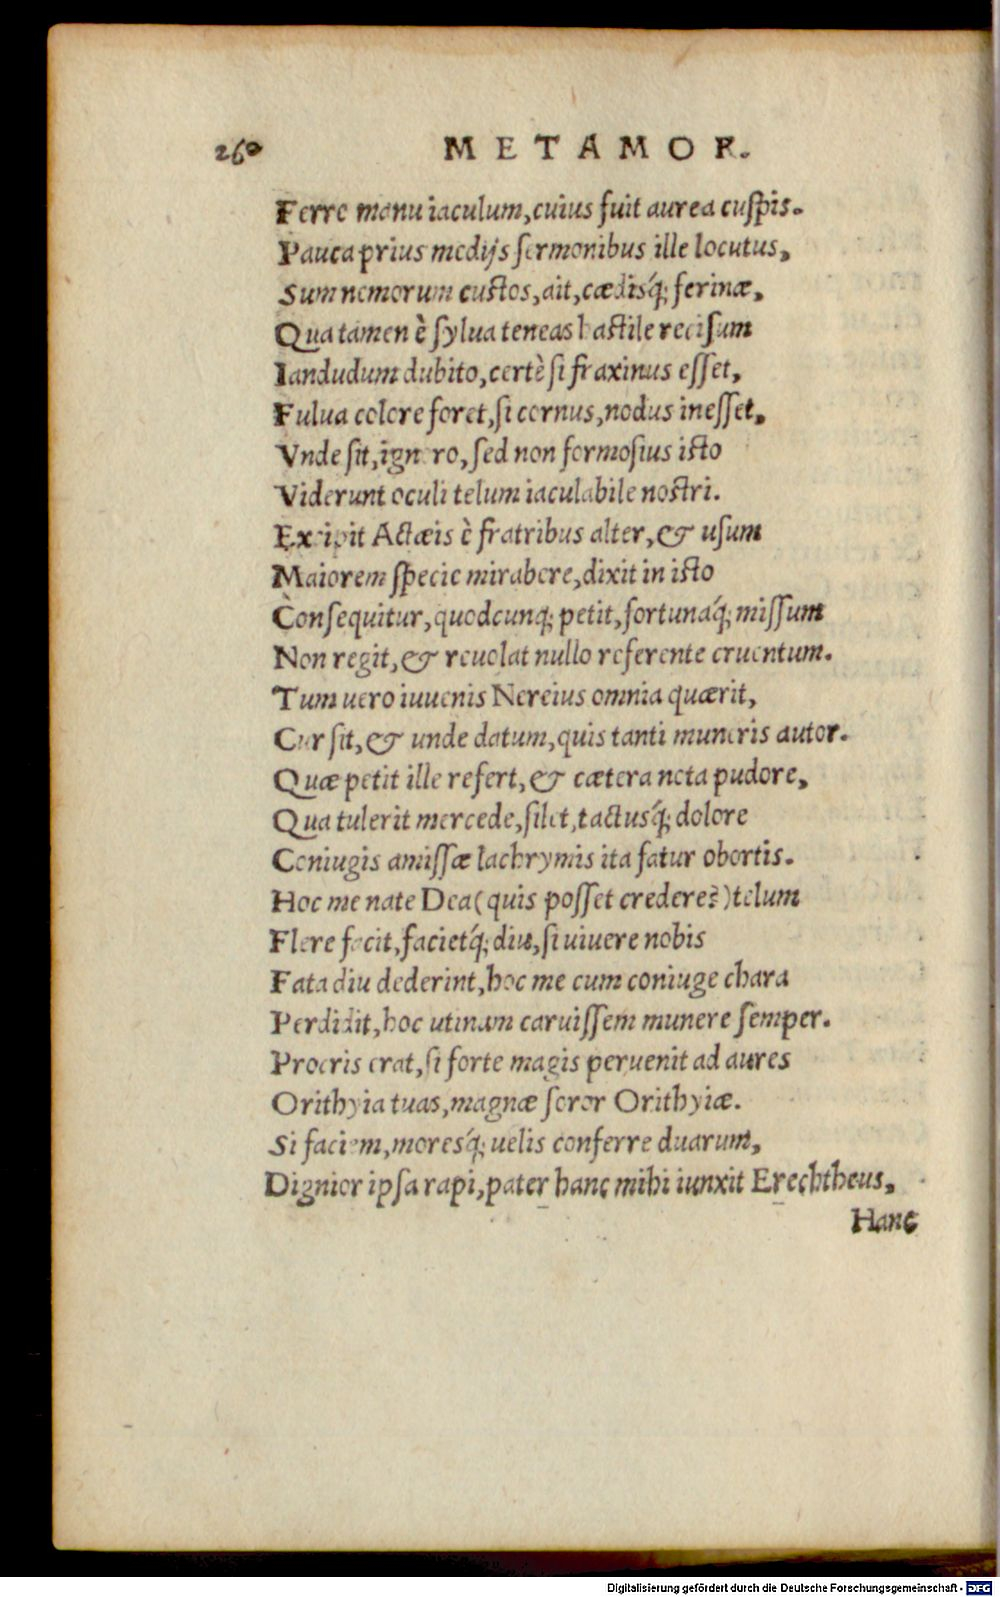 260 METAMOR.
Ferre manu iaculum, cuius fuit aurea cuspis.
Pauca prius medijs sermonibus ille locutus,
Sum nemorum custos, ait, cædisq́; ferinæ,
Qua tamen è sylua teneas hastile recisum
Iandudum dubito, certè si fraxinus esset,
Fulua colore foret, si cornus, nodus inesset,
Vnde sit, ignoro, sed non formosius isto
Viderunt oculi telum iaculabile nostri.
Excipit Actæis è fratribus alter, & usum
Maiorem specie mirabere, dixit in isto
Consequitur, quodcunq; petit, fortunaq́; missum
Non regit, & reuolat nullo referente cruentum.
Tum uero iuuenis Nereius omnia quærit,
Cur sit, & unde datum, quis tanti muneris autor.
Quæ petit ille refert, & cætera nota pudore,
Qua tulerit mercede, silet, tactusq́; dolore
Coniugis amissæ lachrymis ita fatur obortis.
Hoc me nate Dea (quis posset credere?) telum
Flere facit, facietq́; diu, si uiuere nobis
Fata diu dederint, hoc me cum coniuge chara
Perdidit, hoc utinam caruissem munere semper.
Procris erat, si forte magis peruenit ad aures
Orithyia tuas, magnæ soror Orithyiæ.
Si faciem, moresq́; uelis conferre duarum,
Dignior ipsa rapi, pater hanc mihi iunxit Erechtheus,
Hanc
Digitalisierung gefördert durch die Deutsche Forschungsgemeinschaft - DFG